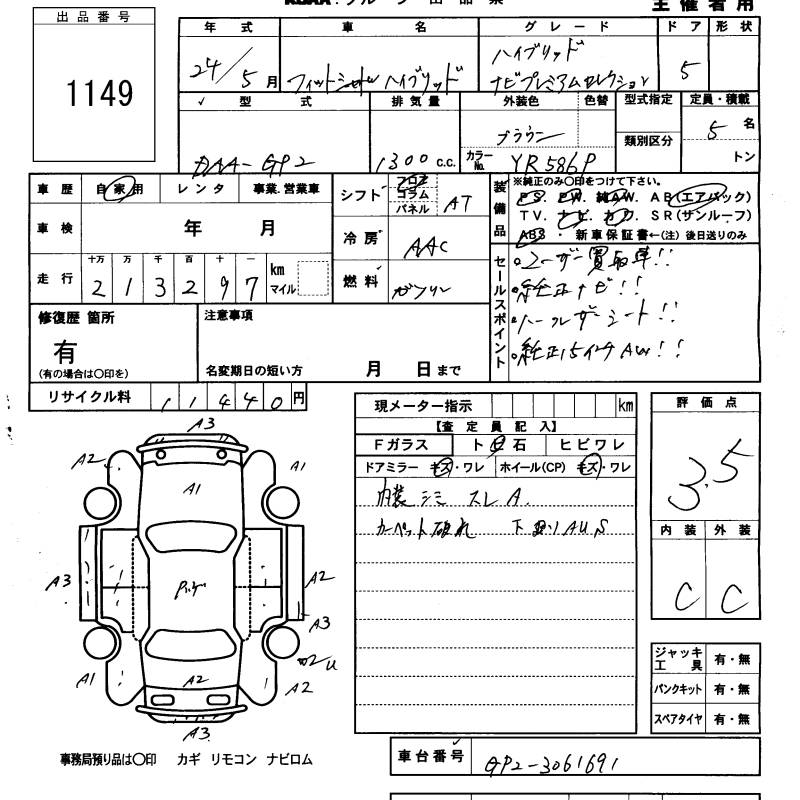 主催者用
出品番号
1149
年式 車名 グレード ドア 形状
24/5月 フィットシャトルハイブリッド ハイブリッド
ナビプレミアムセレクション 5
型式 排気量 外装色 色替 型式指定 定員・積載
DAA-GP2 1300 c.c. ブラウン 類別区分 5名
カラーNo. YR586P トン
車歴 自家用 レンタ 事業.営業車
シフト フロア コラム パネル AT
装備品 ※純正のみ○印をつけて下さい。
PS. PW. 純AW. AB(エアバック)
TV. ナビ. カワ. SR(サンルーフ)
ABS. 新車保証書←(注)後日送りのみ
車検 年 月
冷房 AAC
走行 十万 万 千 百 十 一 km マイル
213297
燃料 ガソリン
セールスポイント
ユーザー買取車!!
純正ナビ!!
ハーフレザーシート!!
純正15インチAW!!
修復歴 箇所
有
(有の場合は○印を)
注意事項
名変期日の短い方 月 日まで
リサイクル料 11440円
現メーター指示 km
【査定員記入】
Fガラス ト 石 ヒビワレ
ドアミラー キズ・ワレ ホイール(CP) キズ・ワレ
内装シミ スレ A.
カーペット破れ 下廻りAUS
評価点
3.5
内装 外装
C C
A3
A2 A1
A1
A3 A2
A3
A1 A2
A2
A3
ジャッキ工具 有・無
パンクキット 有・無
スペアタイヤ 有・無
事務局預り品は○印 カギ リモコン ナビロム
車台番号 GP2-3061691